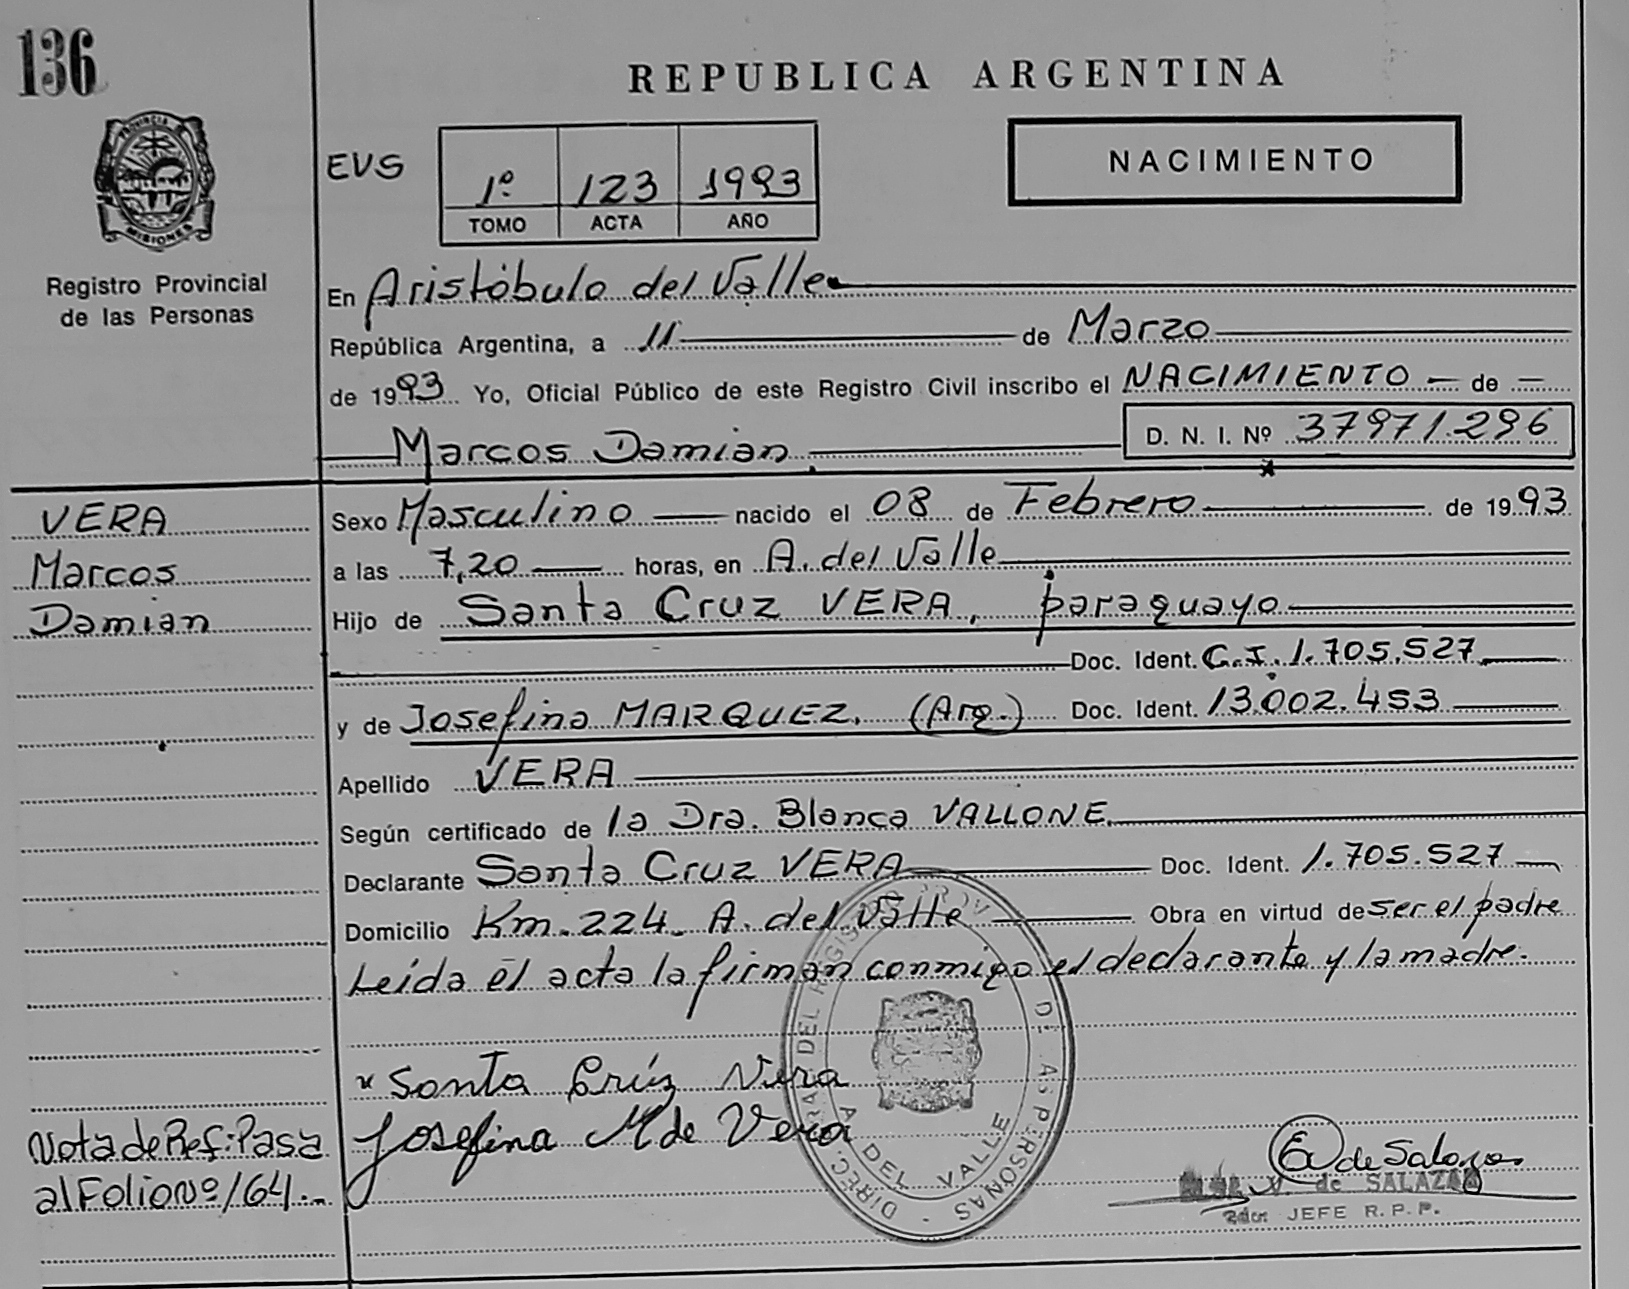 136
REPUBLICA ARGENTINA
PROVINCIA D
MISIONES
Registro Provincial
de las Personas
EVS
1º 123 1993
TOMO ACTA AÑO
NACIMIENTO
En Aristóbulo del Valle
República Argentina, a 11 de Marzo
de 1993 Yo, Oficial Público de este Registro Civil inscribo el NACIMIENTO — de —
Marcos Damian
D. N. I. Nº 37971.296
VERA
Marcos
Damian
Sexo Masculino nacido el 08 de Febrero de 1993
a las 7,20 horas, en A. del Valle
Hijo de Santa Cruz VERA, paraguayo
Doc. Ident. C.I. 1.705.527
y de Josefina MARQUEZ. (Arg.) Doc. Ident. 13.002.453
Apellido VERA
Según certificado de la Dra. Blanca VALLONE.
Declarante Santa Cruz VERA Doc. Ident. 1.705.527
Domicilio Km. 224. A. del Valle Obra en virtud de ser el padre
Leída el acta la firman conmigo el declarante y la madre.
Santa Crúz Vera
Josefina M de Vera
Nota de Ref: Pasa
al Folio Nº 164.
DIREC. GRAL DEL REGISTRO PROV. DE LAS PERSONAS
A DEL VALLE
E de Salazar
V. de SALAZAR
JEFE R. P. P.